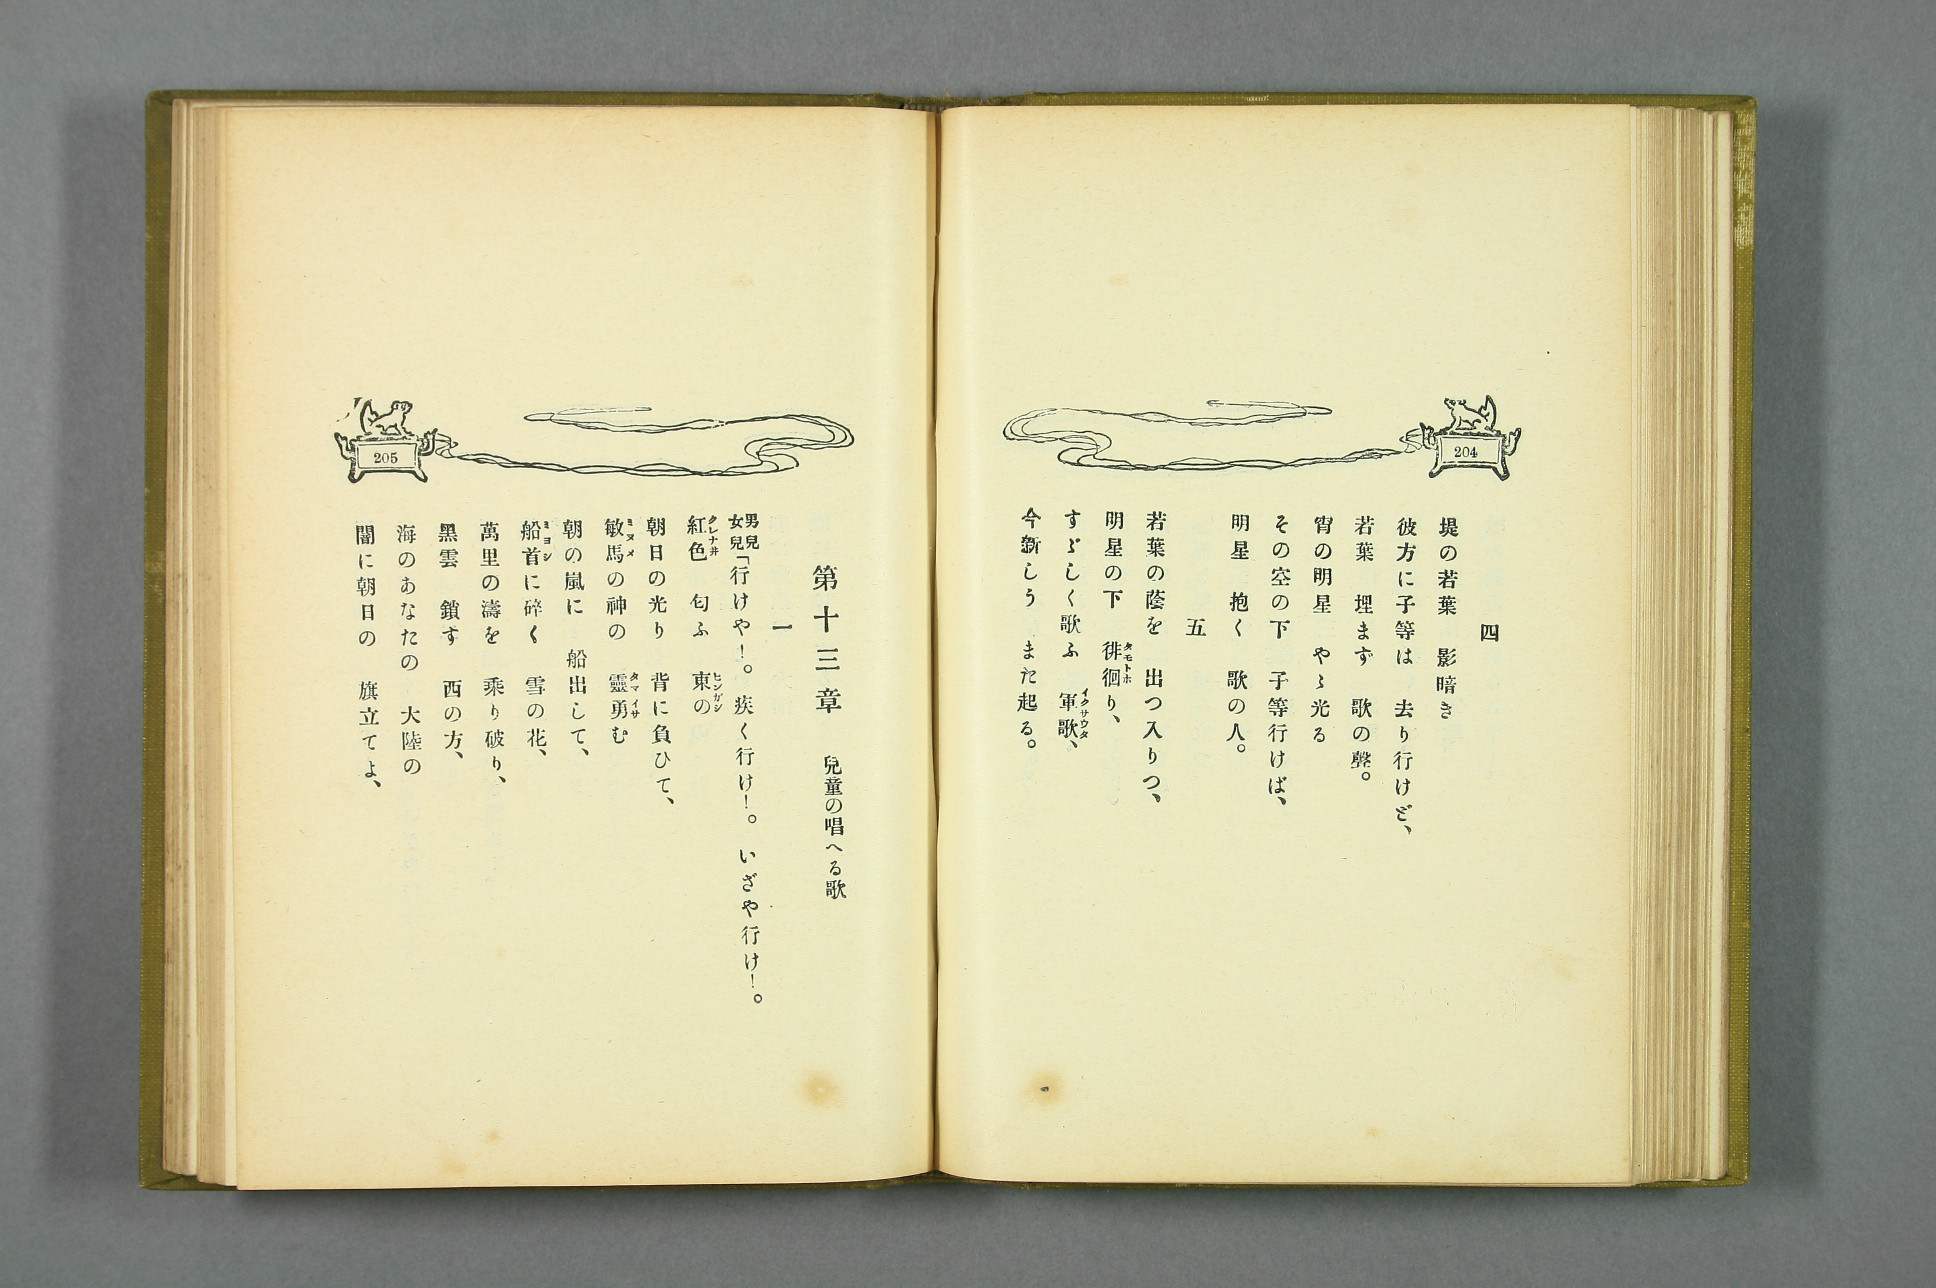 204
四
堤の若葉　影暗き
彼方に子等は　去り行けど、
若葉　埋まず　歌の聲。
宵の明星　やゝ光る
その空の下　子等行けば、
明星　抱く　歌の人。
五
若葉の蔭を　出つ入りつ、
明星の下　徘徊り、
タモトホ
すゞしく歌ふ　軍歌、
イクサウタ
今新しう　また起る。
205
第十三章　兒童の唱へる歌
一
男兒
女兒「行けや！。疾く行け！。いざや行け！。
紅色　匂ふ　東の
クレナ井　ヒンガシ
朝日の光り　背に負ひて、
敏馬の神の　靈勇む
ミヌメ　タマイサ
朝の嵐に　船出して、
船首に碎く　雪の花、
ミヨシ
萬里の濤を　乘り破り、
黑雲　鎖す　西の方、
海のあなたの　大陸の
闇に朝日の　旗立てよ、